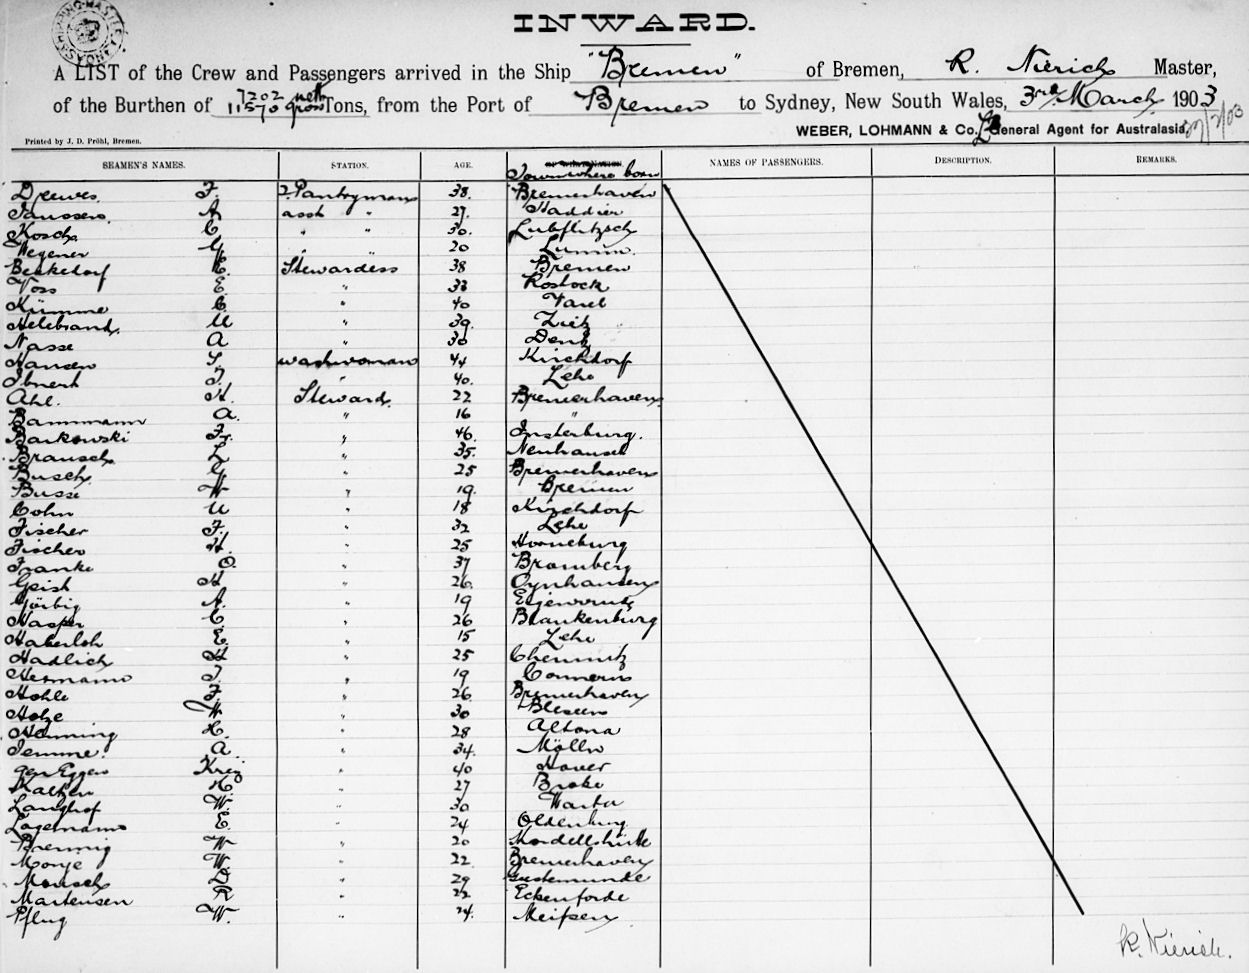 INWARD.
A LIST of the Crew and Passengers arrived in the Ship "Bremen" of Bremen, R. Nierich Master,
7202 nett
of the Burthen of 11570 gross Tons, from the Port of Bremen to Sydney, New South Wales, 3rd March 1903
WEBER, LOHMANN & Co. General Agent for Australasia.
Printed by J. D. Pröhl, Bremen.
SEAMEN'S NAMES. STATION. AGE. Town where born NAMES OF PASSENGERS. DESCRIPTION. REMARKS.
Drewes. F. 2. Pantryman 38. Bremerhaven
Janssen. A. asst " 27.
Kosch. C. " " 30.
Wegener G. " " 20
H. Stewardess 38 Bremen
Voss E. " 33 Rostock
Kümme C. " 40 Varel
Helebrand. M " 39. Zeitz
Nasse A " 30 Deutz
Hansen S. washwoman 44 Kirchdorf
J. " 40. Lehe
Ahl. H. Steward. 22 Bremerhaven
Bammann A. " 16 "
Barkowski Fr. " 46. Insterburg.
Brausch. L " 35. Neuhausen
Busch G " 25 Bremerhaven
Busse W " 19. Bremen
Cohn M " 18 Kirchdorf
Fischer F. " 32 Lehe
Fischer H. " 25 Horneburg
Franke O. " 37 Bromberg
Geist H " 26. Oynhausen
Görbig A. " 19
Hasper C. " 26 Blankenburg
Haberloh E. " 15 Lehe
Hadlich H " 25 Chemnitz
Hermann J. " 19 Connern
Hohle F. " 26. Bremerhaven
Holze W. " 30 Blesen
Henning H. " 28 Altona
Jemme. A. " 34. Mölln
gen Eggen Krey " 40 Hover
Kalken H. " 27 Brake
Langhof W. " 30
Lagemann E. " 24 Oldenburg
W " 20
Monje W " 22. Bremerhaven
Mensch D " 29 Geestemünde
Martensen R " 22 Eckenförde
Pflug W. " 24. Meissen
R. Nierich.